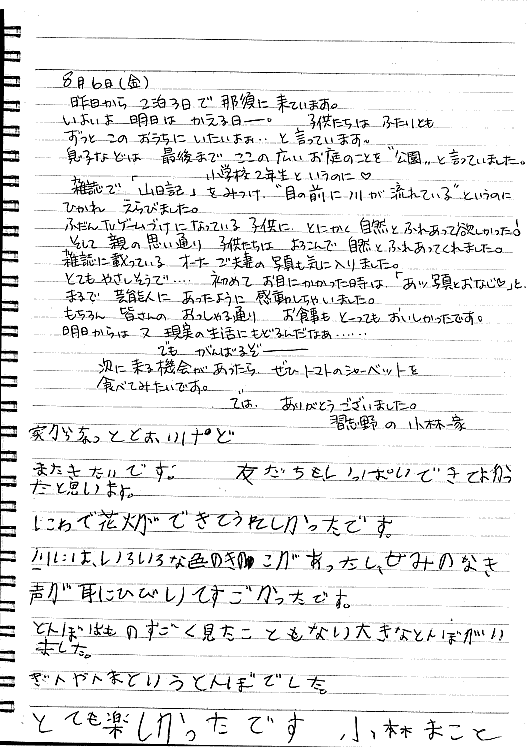 8月6日(金)
昨日から 2泊3日で 那須に 来ています。
いよいよ 明日は かえる日ー。 子供たちは ふたりとも
ずっと この おうちに いたいよぉ‥ と 言っています。
息子などは 最後まで ここの 広い お庭のことを "公園" と 言っていました。
小学校2年生 というのに♡
雑誌で 「山日記」を みつけ、"目の前に 川が 流れている" というのに
ひかれ えらびました。
ふだん TVゲームづけに なっている 子供に、とにかく 自然と ふれあって 欲しかった!
そして 親の 思い通り 子供たちは よろこんで 自然と ふれあってくれました。
雑誌に 載っている オーナーご夫妻の 写真も 気に入りました。
とても やさしそうで‥‥ 初めて お目にかかった時は、「あッ 写真とおなじ♡」と、
まるで 芸能人に あったように 感動しちゃいました。
もちろん 皆さんの おっしゃる通り お食事も とっても おいしかったです。
明日からは 又 現実の生活に もどるんだなぁ‥‥‥
でも がんばるぞーーー
次に 来る機会が あったら、ぜひ トマトの シャーベットを
食べてみたいです。
では、ありがとうございました。
習志野 の 小林一家
家からちょっととおいけど
またきたいです。 友だちもいっぱいできてよかっ
たと思いますよ。
にわで花火ができてうれしかったです。
川には、いろいろな色のきのこがあったし、せみのなき
声が耳にひびいてすごかったです。
とんぼはものすごく見たこともない大きなとんぼがい
ました。
ぎんやんまというとんぼでした。
とても楽しかったです 小林まこと